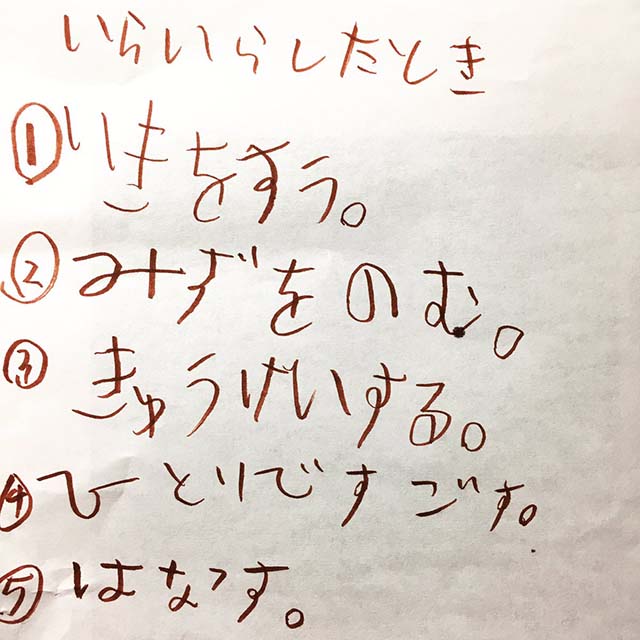 いらいらしたとき
① いきをすう。
② みずをのむ。
③ きゅうけいする。
④ ひとりですごす。
⑤ はなす。